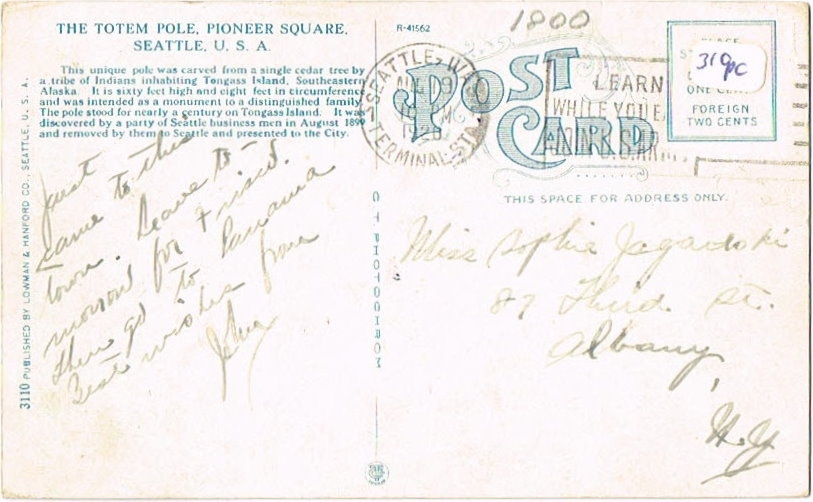 THE TOTEM POLE, PIONEER SQUARE,
SEATTLE, U. S. A.
This unique pole was carved from a single cedar tree by
a tribe of Indians inhabiting Tongass Island, Southeastern
Alaska. It is sixty feet high and eight feet in circumference
and was intended as a monument to a distinguished family.
The pole stood for nearly a century on Tongass Island. It was
discovered by a party of Seattle business men in August 1899
and removed by them to Seattle and presented to the City.
Just
came to this
town. Leave to-
morrow for Frisco.
then go to Panama
Best wishes from
John
3110 PUBLISHED BY LOWMAN & HANFORD CO., SEATTLE, U. S. A.
C. T. PHOTOCHROM
R-41562
1800
SEATTLE, WASH.
TERMINAL STA.
LEARN
WHILE YOU
POST
CARD
ONE CENT
FOREIGN
TWO CENTS
319pc
THIS SPACE FOR ADDRESS ONLY.
Miss Sophie
87 Third. St.
Albany,
N.Y